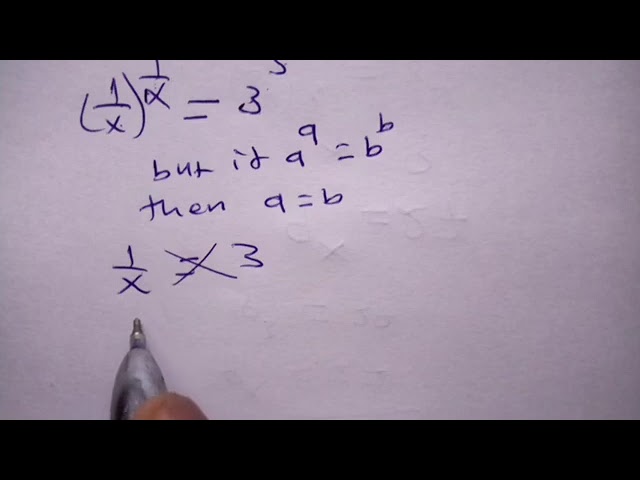 (1/x)^(1/x) = 3^3
but if a^a = b^b
then a = b
1/x = 3